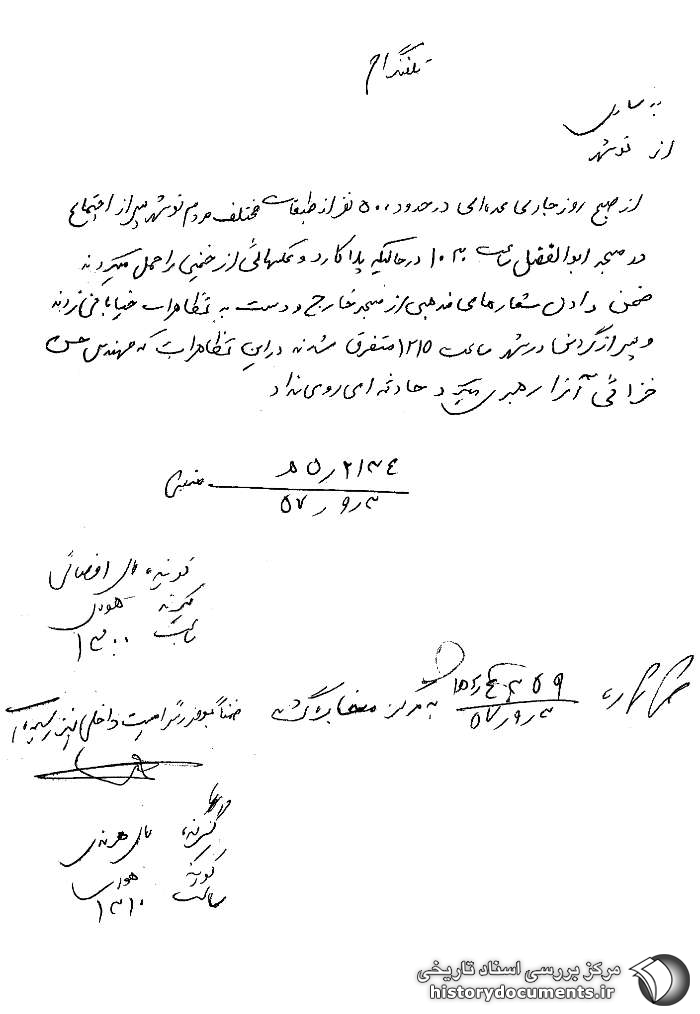 تلفنگرام
به ساری
از نوشهر
از صبح روز جاری عده‌ای در حدود ۵۰۰ نفر از طبقات مختلف مردم نوشهر پس از اجتماع
در مسجد ابوالفضل ساعت ۱۰۳۰ در حالیکه پلاکارد و عکسهائی از خمینی را حمل میکردند
ضمن دادن شعارهای مذهبی از مسجد خارج و دست به تظاهرات خیابانی زدند
و پس از گردش در شهر ساعت ۱۲۱۵ متفرق شدند در این تظاهرات که مهندس حسن
خزائی آنرا رهبری میکرد حادثه‌ای روی نداد
۲۱۳۴ر۵۵
۳ر۹ر۵۷
گوینده
گیرنده
ساعت ۱۳۰۰
۵۷ر۹ر۳ به مرکز مخابره گشت ضمناً داخلی نیز رسیده
گیرنده
گوینده
ساعت ۱۳۱۰
مرکز بررسی اسناد تاریخی
historydocuments.ir